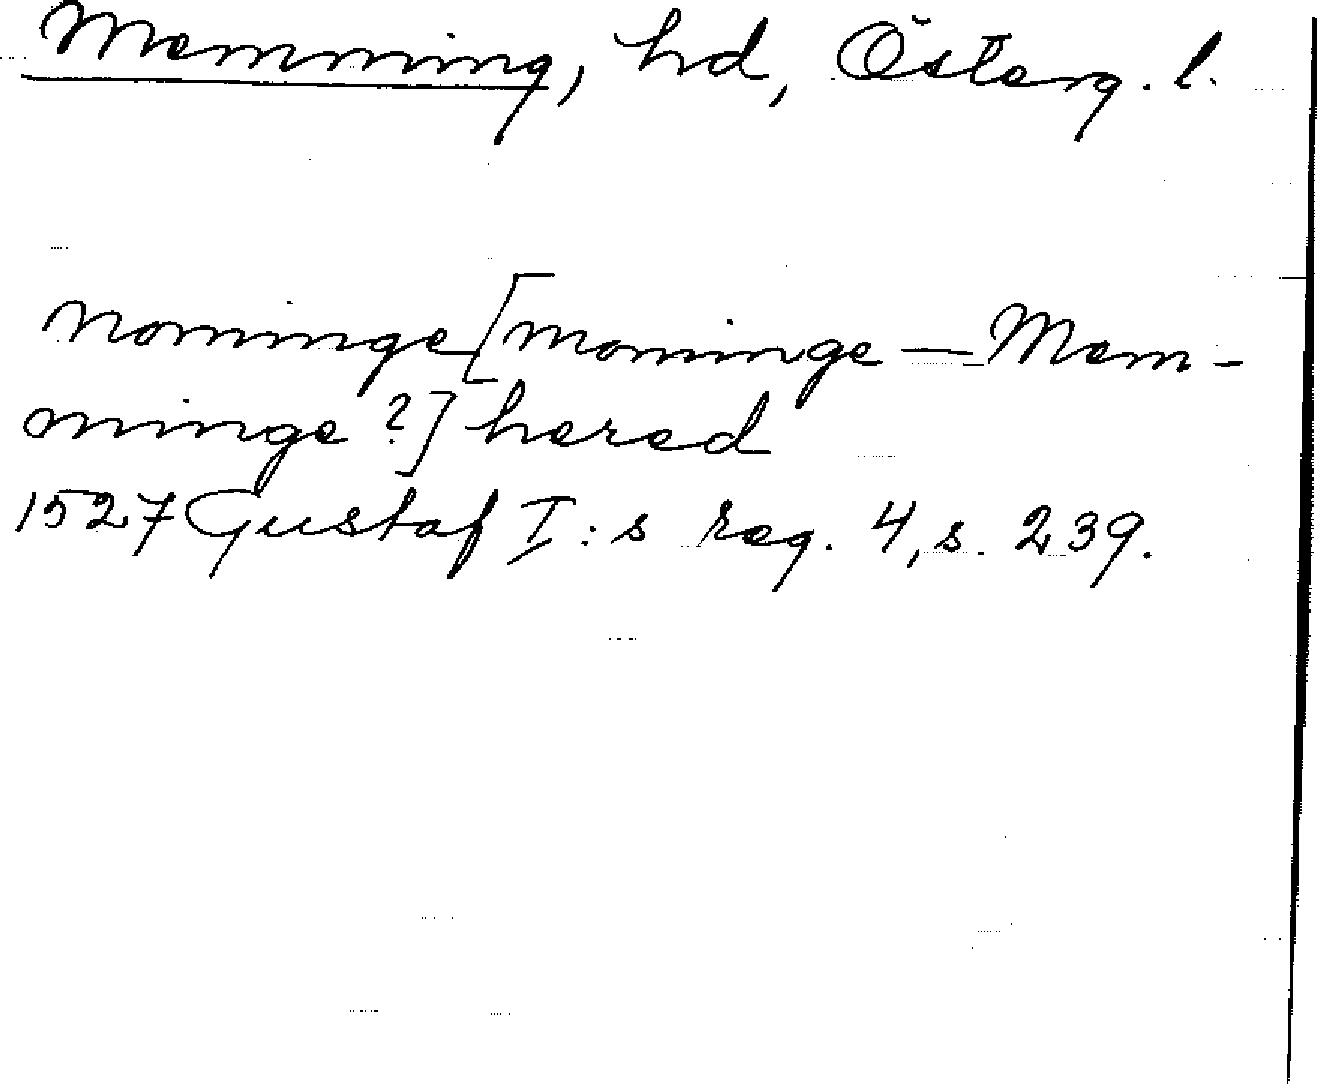 Memming, hd, Österg. l.
Nominge [Moninge — Mem-
minge ?] hered
1527 Gustaf I:s reg. 4, s. 239.